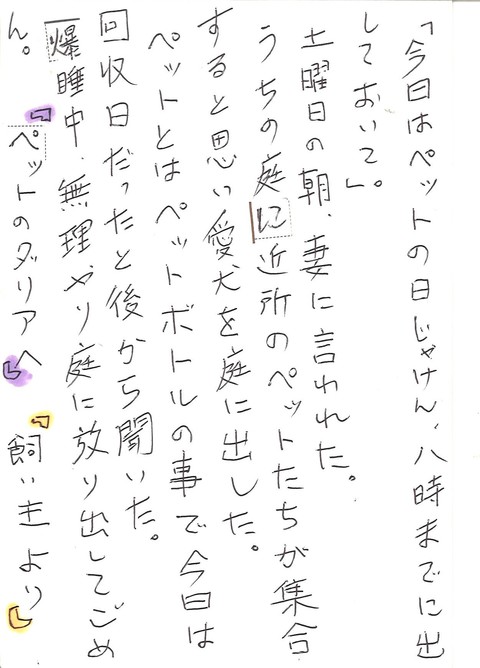 「今日はペットの日じゃけん、八時までに出
しておいて」。
土曜日の朝、妻に言われた。
うちの庭に近所のペットたちが集合
すると思い愛犬を庭に出した。
ペットとはペットボトルの事で今日は
回収日だったと後から聞いた。
爆睡中、無理やり庭に放り出してごめ
ん。『ペットのダリアへ』『飼い主より』